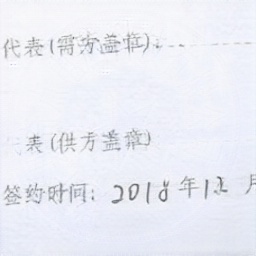 代表(需方盖章):
表(供方盖章)
签约时间: 2018年12月